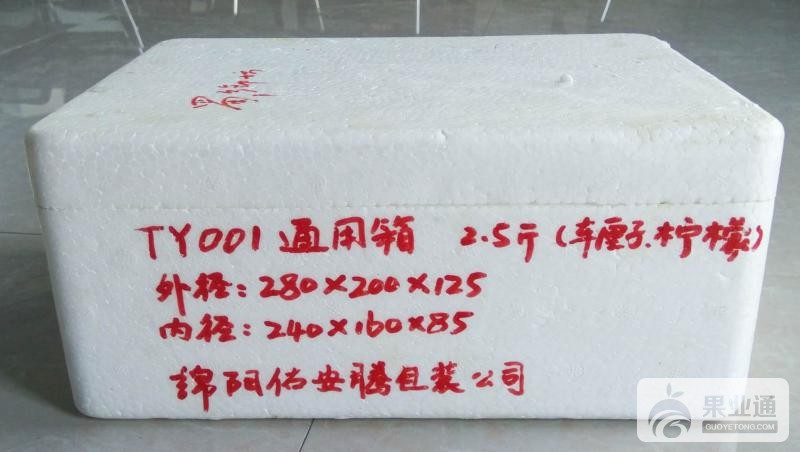 TY001 通用箱 2.5斤(车厘子.柠檬)
外径:280×200×125
内径:240×160×85
绵阳佑安腾包装公司
果业通
GUOYETONG.COM